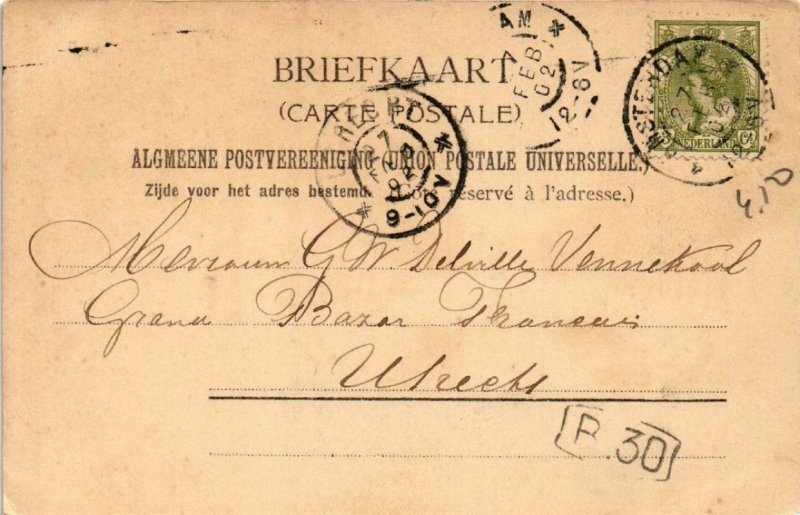 BRIEFKAART
(CARTE POSTALE)
ALGMEENE POSTVEREENIGING (UNION POSTALE UNIVERSELLE.)
Zijde voor het adres bestemd. (Côté réservé à l'adresse.)
AM
7 FEB 02
12-8V
AMSTERDAM
NEDERLAND
UTRECHT
7 FEB 02
9-10V
4,10
Mevrouw G W. Delville Vennekool
Grand Bazar Francais
Utrecht
B 30